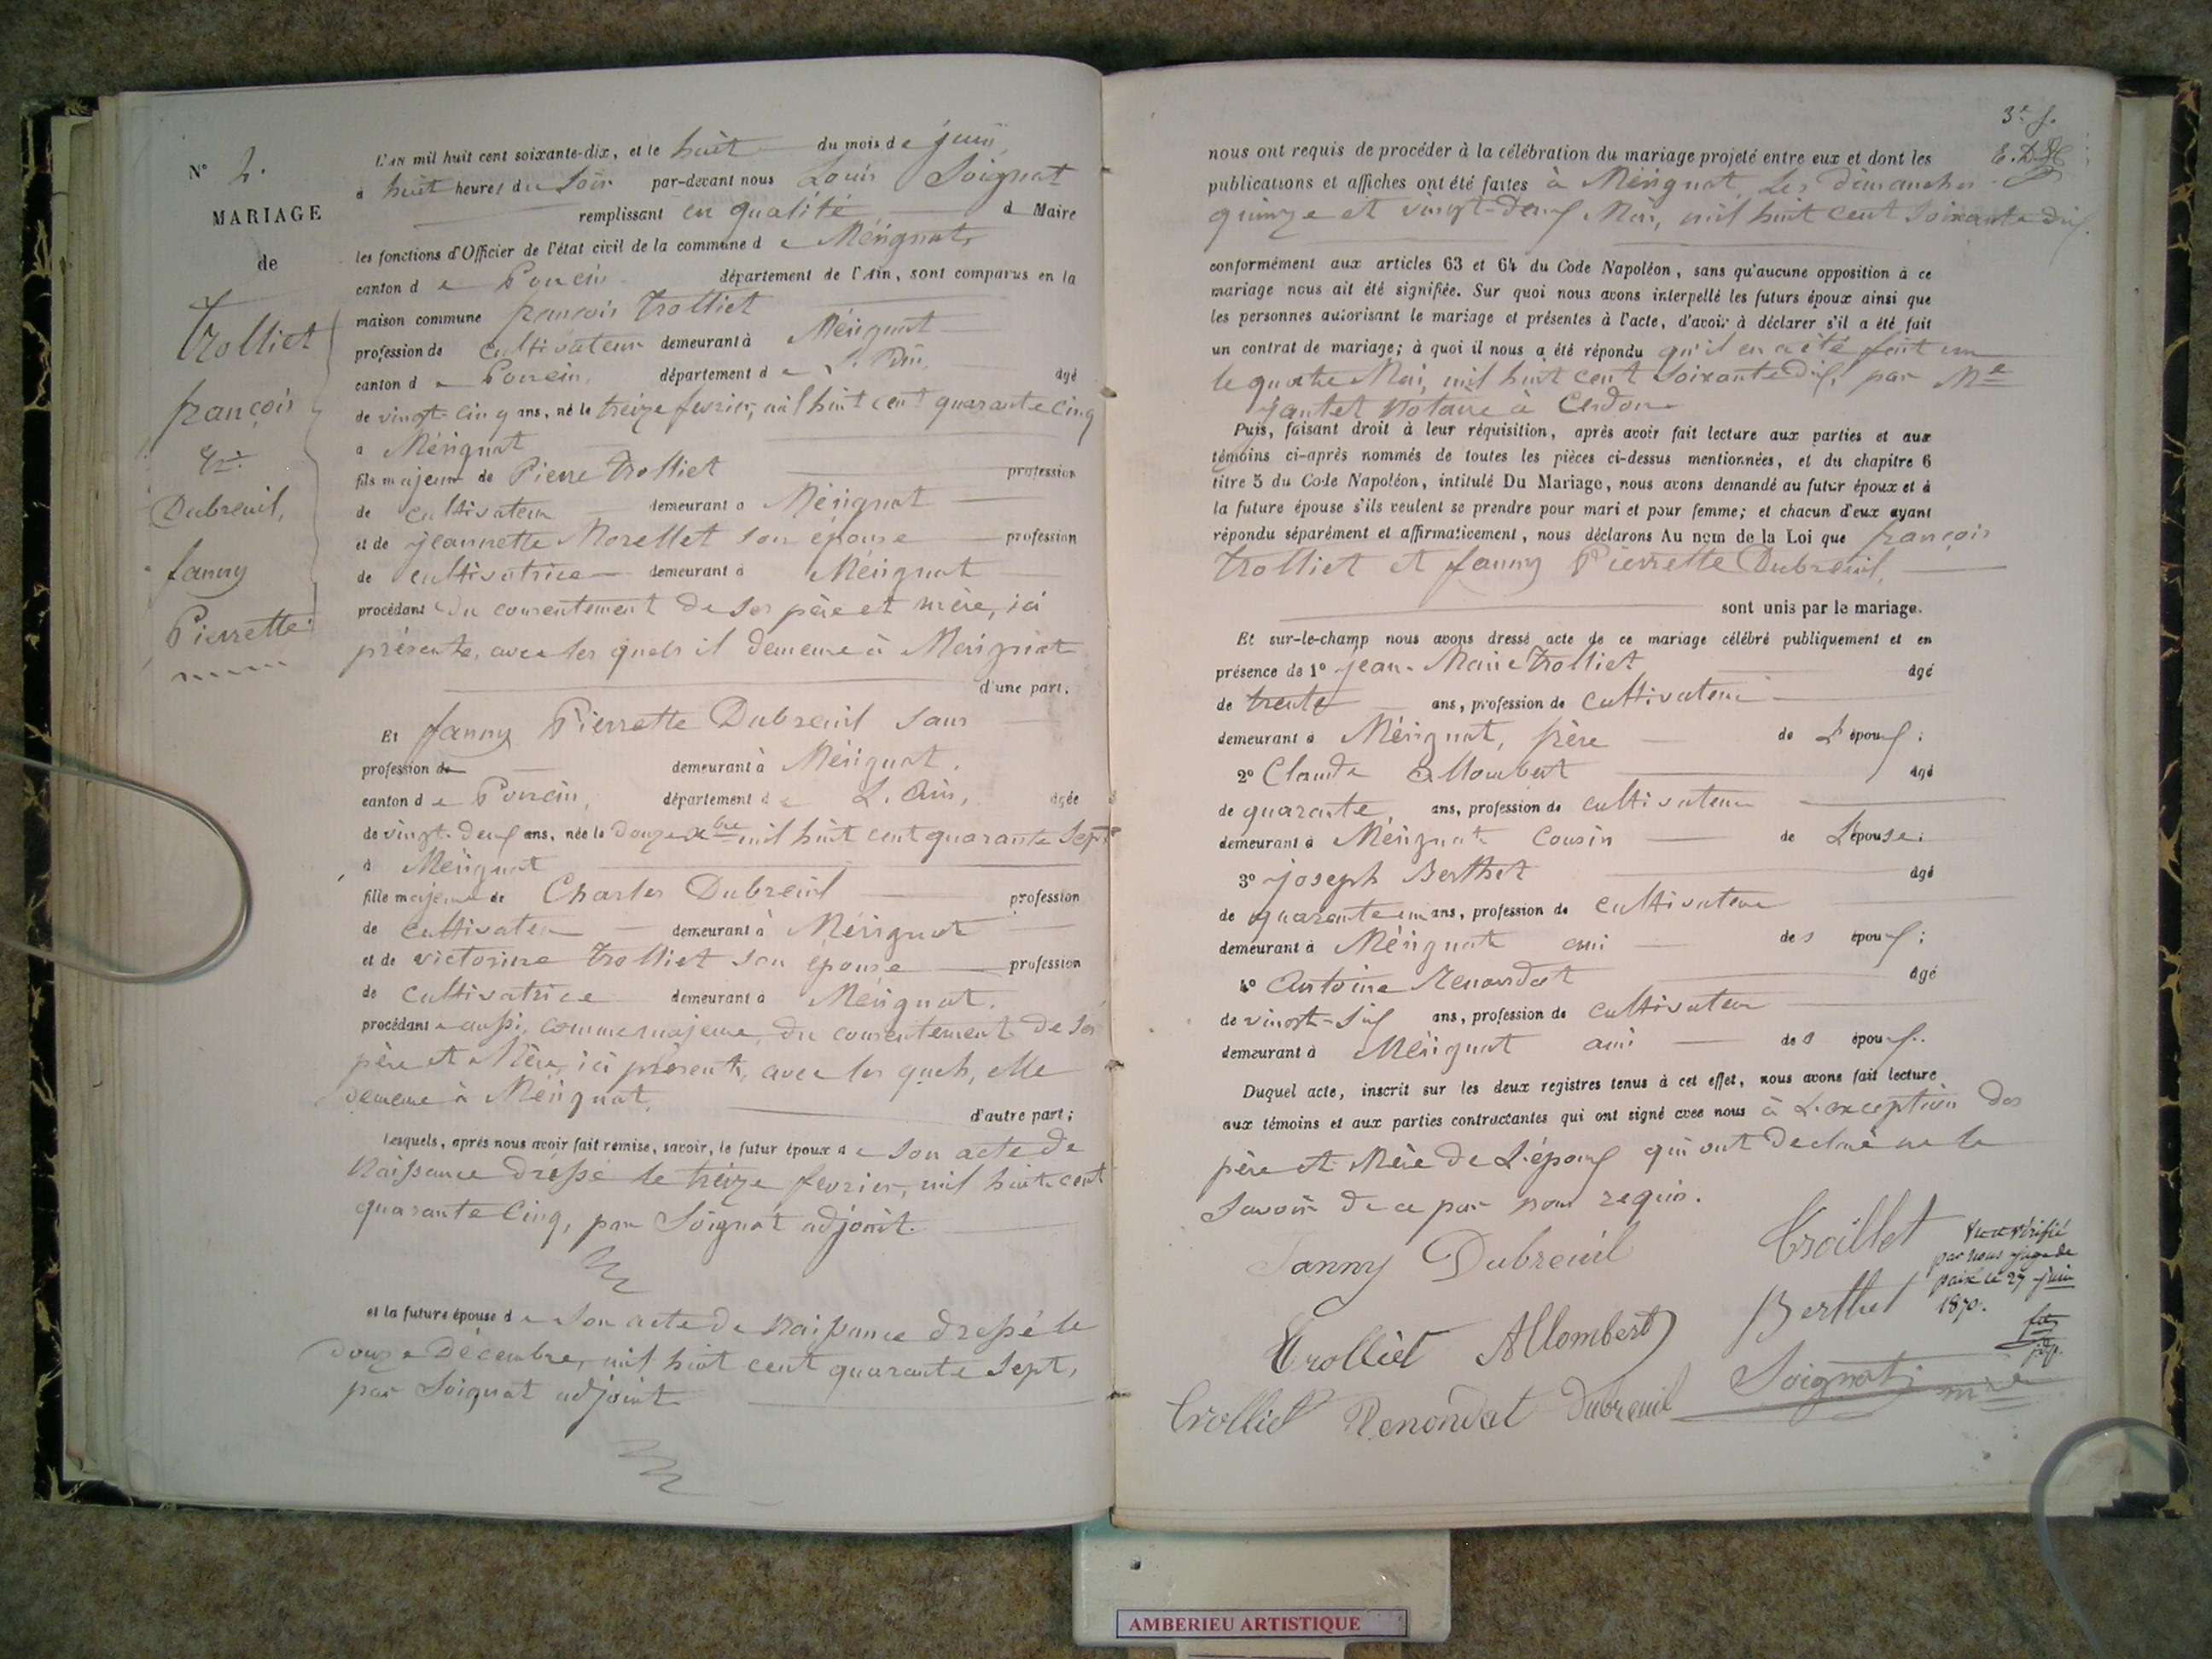 N° 2.
MARIAGE
de
Trolliet
françois
&
Dubreuil,
fanny
Pierrette
L'an mil huit cent soixante-dix, et le huit du mois de juin,
à huit heures du soir par-devant nous Louis Soignat
remplissant en qualité d Maire
les fonctions d'Officier de l'état civil de la commune de Mérignat,
canton de Poncin département de l'Ain, sont comparus en la
maison commune françois Trolliet
profession de cultivateur demeurant à Mérignat
canton de Poncin, département de L'Ain, âgé
de vingt-cinq ans, né le treize fevrier, mil huit cent quarante cinq
à Mérignat
fils majeur de Pierre Trolliet profession
de cultivateur demeurant à Mérignat
et de jeannette Morellet son épouse profession
de cultivatrice demeurant à Mérignat
procédant du consentement de ses père et mère, ici
présents, avec les quels il demeure à Mérignat
d'une part.
Et fanny Pierrette Dubreuil sans
profession de demeurant à Mérignat.
canton de Poncin, département de L'Ain, âgée
de vingt-deux ans, née le douze xbre mil huit cent quarante sept
à Mérignat
fille majeure de Charles Dubreuil profession
de cultivateur demeurant à Mérignat
et de victorine Trolliet son épouse profession
de cultivatrice demeurant à Mérignat.
procédant aussi, comme majeure, du consentement de ses
père et Mère, ici présents, avec les quels, elle
demeure à Mérignat,
d'autre part;
Lesquels, après nous avoir fait remise, savoir, le futur époux de son acte de
Naissance dressé le treize fevrier, mil huit cent
quarante Cinq, par Soignat adjoint.
et la future épouse de son acte de Naissance dressé le
douze Décembre, mil huit cent quarante sept,
par Soignat adjoint
3e f.
nous ont requis de procéder à la célébration du mariage projeté entre eux et dont les
publications et affiches ont été faites à Mérignat, les dimanches
quinze et vingt-deux Mai, mil huit cent soixante dix.
conformément aux articles 63 et 64 du Code Napoléon, sans qu'aucune opposition à ce
mariage nous ait été signifiée. Sur quoi nous avons interpellé les futurs époux ainsi que
les personnes autorisant le mariage et présentes à l'acte, d'avoir à déclarer s'il a été fait
un contrat de mariage; à quoi il nous a été répondu qu'il en a été fait un
le quatre Mai, mil huit cent soixante dix, par Me
jantet Notaire à Cerdon
Puis, faisant droit à leur réquisition, après avoir fait lecture aux parties et aux
témoins ci-après nommés de toutes les pièces ci-dessus mentionnées, et du chapitre 6
titre 5 du Code Napoléon, intitulé Du Mariage, nous avons demandé au futur époux et à
la future épouse s'ils veulent se prendre pour mari et pour femme; et chacun d'eux ayant
répondu séparément et affirmativement, nous déclarons Au nom de la Loi que françois
Trolliet et fanny Pierrette Dubreuil,
sont unis par le mariage.
Et sur-le-champ nous avons dressé acte de ce mariage célébré publiquement et en
présence de 1° jean-Marie Trolliet âgé
de trente ans, profession de cultivateur
demeurant à Mérignat, frère de L'époux;
2° Claude Allombert âgé
de quarante ans, profession de cultivateur
demeurant à Mérignat cousin de L'épouse;
3° joseph Berthet âgé
de quarante un ans, profession de cultivateur
demeurant à Mérignat ami des époux;
4° Antoine Renondat âgé
de vingt-six ans, profession de cultivateur
demeurant à Mérignat ami des époux.
Duquel acte, inscrit sur les deux registres tenus à cet effet, nous avons fait lecture
aux témoins et aux parties contractantes qui ont signé avec nous à L'exception des
père et Mère de L'époux qui ont déclaré ne le
savoir de ce par nous requis.
Fanny Dubreuil Trolliet
Vu et vérifié
par nous juge de
paix le 27 juin
1870.
Trolliet Allombert Berthet
Trolliet Renondat Dubreuil Soignat mire
AMBERIEU ARTISTIQUE